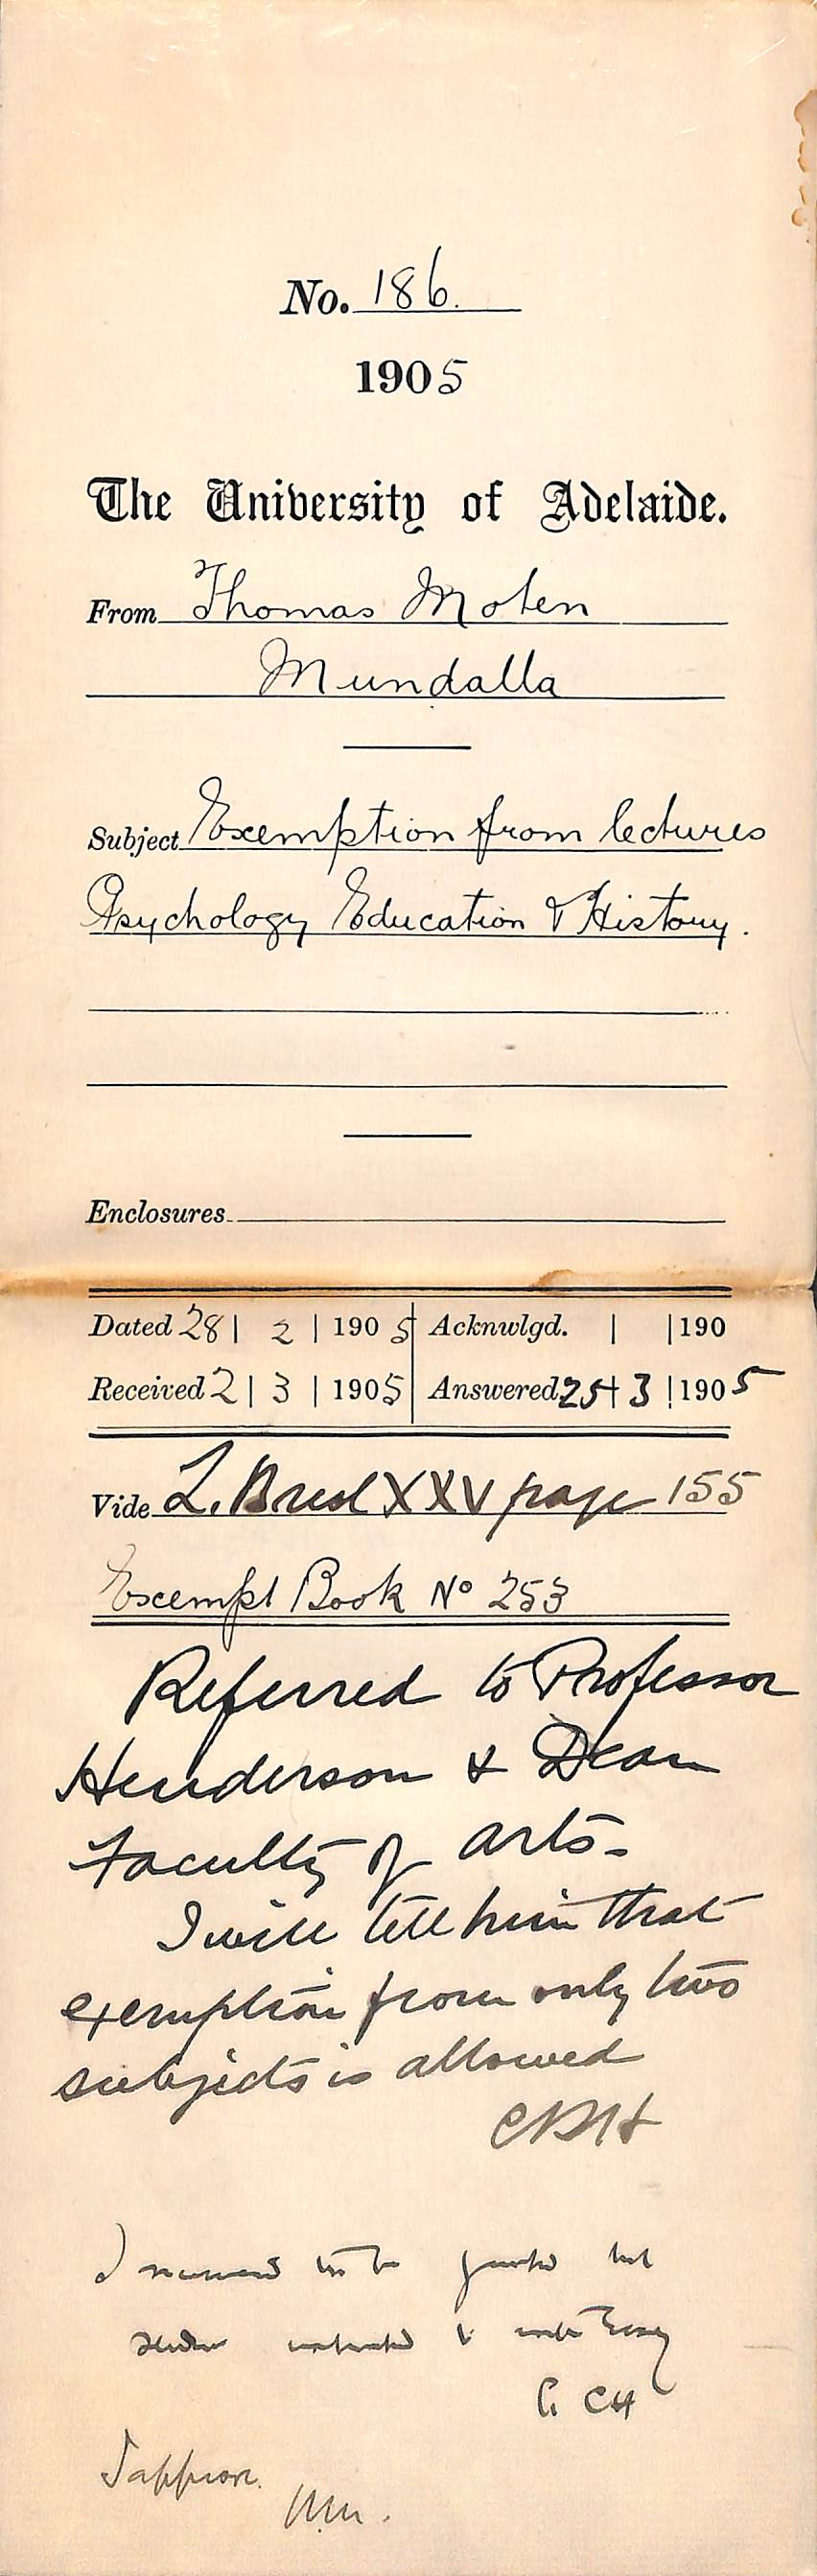 No. 186.
1905
The University of Adelaide.
From Thomas Moten
Mundalla
Subject Exemption from lectures
Psychology Education & History.
Enclosures
Dated 28 | 2 | 1905 Acknwlgd. | | 190
Received 2 | 3 | 1905 Answered 25 | 3 | 1905
Vide L. XXV page 155
Exempt Book No 253
Referred to Professor
Henderson & Dean
Faculty of Arts.
I will tell him that
exemption from only two
subjects is allowed
CRH
I to be granted but
student to write Essay
G CH
I approve.